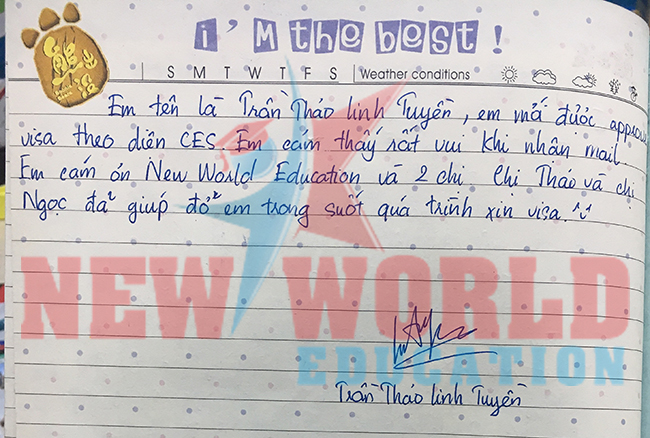 i'm the best!
S M T W T F S Weather conditions
Em tên là Trần Thảo Linh Tuyền, em mới được approve
visa theo diện CES. Em cảm thấy rất vui khi nhận mail.
Em cám ơn New World Education và 2 chị Chị Thảo và chị
Ngọc đã giúp đỡ em trong suốt quá trình xin visa. ^^
NEW WORLD
EDUCATION
Trần Thảo Linh Tuyền